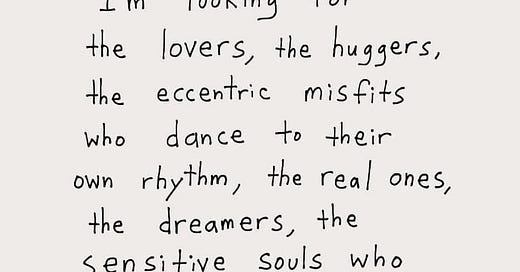 I'm looking for
the lovers, the huggers,
the eccentric misfits
who dance to their
own rhythm, the real ones,
the dreamers, the
sensitive souls who